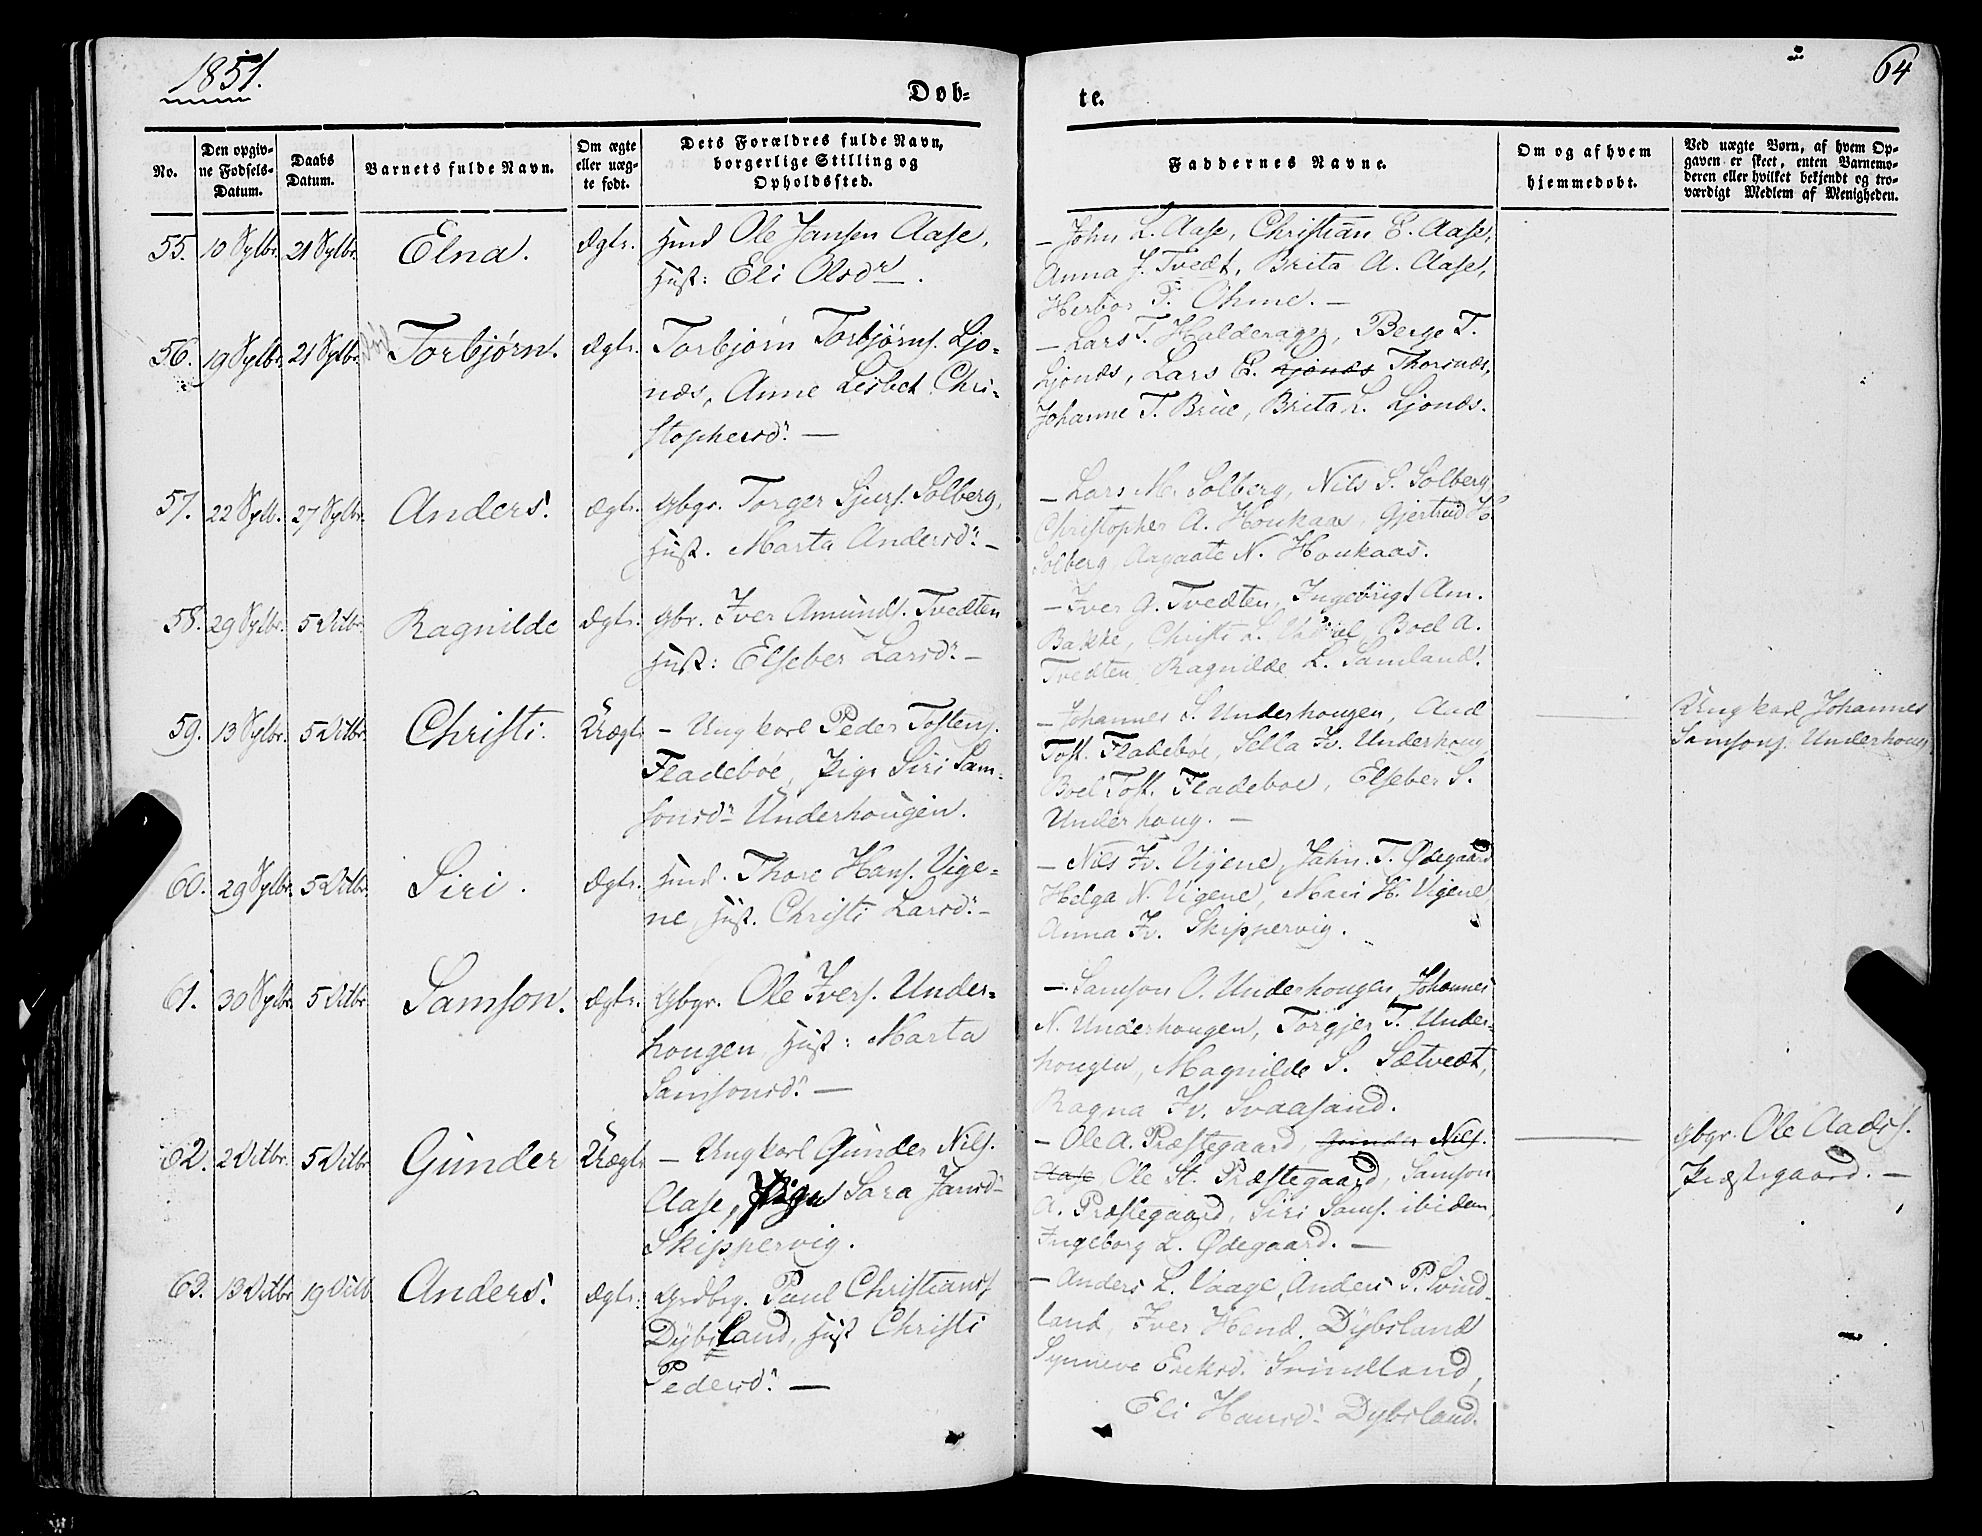 1851.
64
Døb-
te.
No.
Den opgiv-
ne Fødsels-
Datum.
Daabs
Datum.
Barnets fulde Navn.
Om ægte
eller uæg-
te født.
Dets Forældres fulde Navn,
borgerlige Stilling og
Opholdssted.
Faddernes Navne.
Om og af hvem
hjemmedøbt.
Ved uægte Børn, af hvem Op-
gaven er skeet, enten Barnemo-
deren eller hvilket bekjendt og tro-
værdigt Medlem af Menigheden.
55. 10 21 Elna. Ægte. Huusmd Ole Jansen Aase,
Hust: Eli Olsdr.
– John L. Aase, Christian E. Aase,
Anna J. Tvedt, Brita A. Aase,
Herbor P. Ohme. –
56. 19 21 Torbjørn. Ægte. Torbjørn Torbjørns. Ljo-
næs, Anne Lisbet Chri-
stophersdr. –
– Lars T. Halderager, Berge T.
Ljonæs, Lars E. Ljonæs Thorsnæs,
Johanne T. Brue, Brita L. Ljonæs.
57. 22 27 Anders. Ægte. Gbgr. Torger Sjurs. Solberg,
Hust. Marta Andersdr. –
– Lars M. Solberg, Nils S. Solberg
Christopher A. Houkaas, Gjertrud H.
Solberg, Aagaate N. Houkaas.
58. 29 5 Ragnilde Ægte. Gbr. Iver Amunds. Tvedten
Hust: Elseber Larsdr. –
– Iver G. Tvedten, Ingebrigt Am.
Bakke, Christi L. Boel A.
Tvedten, Ragnilde L. Samland.
59. 13 5 Christi. Uægte – Ungkarl Peder Tostens.
Fladebøe, Pige Siri Sam-
sonsdr. Underhougen.
– Johannes S. Underhougen, Aad
Tost. Fladebøe, Sella Iv. Underhoug
Boel Tost. Fladebøe, Elseber S.
Underhoug. –
Ungkarl Johannes
Samsons. Underhoug
60. 29 5 Siri. Ægte. Huusmd. Thore Hans. Vige-
ne, Hust. Christi Larsdr. –
– Nils Iv. Vigene, Jahn. T. Ødegaard
Helga N. Vigene, Mari H. Vigene,
Anna Iv. Skippervig.
61. 30 5 Samson. Ægte. Gbgr. Ole Ivers. Under-
hougen, Hust: Marta
Samsonsdr. –
– Samson O. Underhougen, Johannes
N. Underhougen, Torgjer T. Under-
hougen, Magnilde S. Sætvedt,
Ragna Iv. Svaasand.
62. 2 5 Gunder Uægte – Ungkarl Gunder Nils.
Aase, Pige Sara Jansdr
Skippervig.
– Ole A. Præstegaard, Gunder Nils.
Aase Ole St. Præstegaard, Samson
A. Præstegaard, Siri Sams. ibidem,
Ingeborg L. Ødegaard. –
Gbgr. Ole Aads.
Præstegaard. –
63. 13 19 Anders. Ægte. Grdbrg. Paul Christians
Dybsland, Hust Christi
Pedersdr. –
– Anders L. Vaage, Anders P. Svind-
land, Iver Hend. Dybsland
Synneve Eriksd. Svindland,
Eli Hansdr. Dybsland.